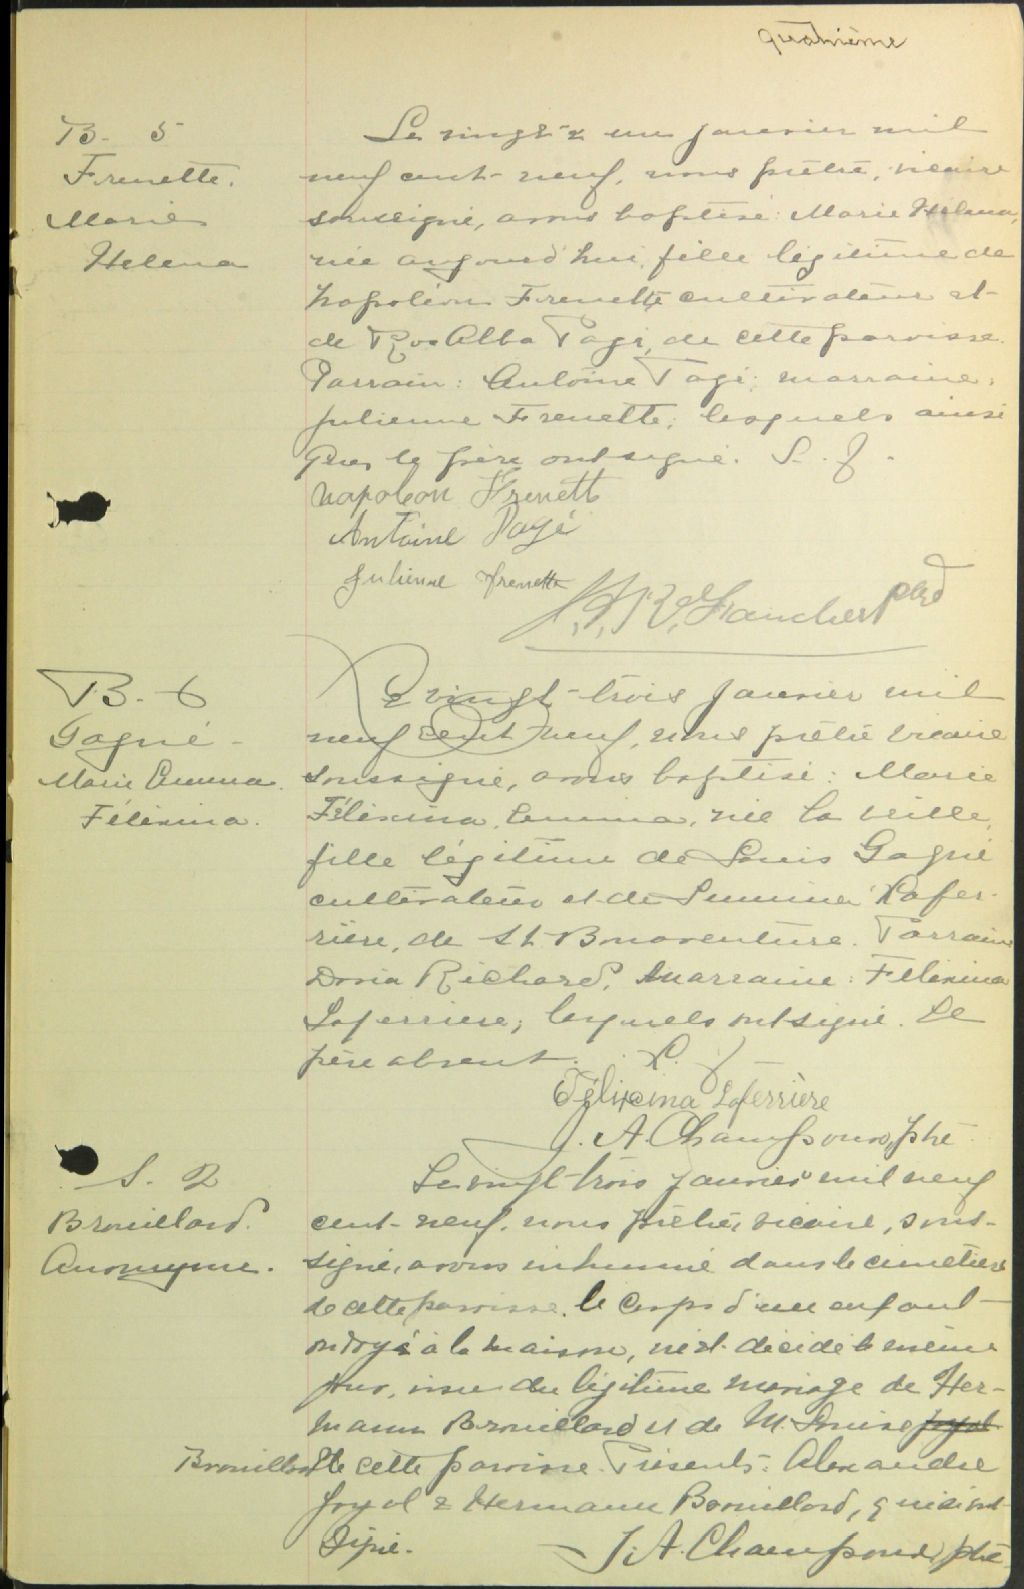 quatrième
B. 5
Frenette.
Marie
Helena
Le vingt & un janvier mil
neuf cent neuf, nous prêtre, vicaire
soussigné, avons baptisé: Marie Hélena,
née aujourd'hui, fille légitime de
Napoléon Frenette cultivateur et
de Rose Alba Pagé, de cette paroisse.
Parrain: Antoine Pagé; marraine:
Julienne Frenette; lesquels ainsi
que le père ont signé. L. f.
Napoleon Frenett
Antoine Pagé
Julienne Frenette
Faucher ptre
B. 6
Gagné
Marie Emma
Félixina.
Le vingt-trois janvier mil
neuf cent neuf, nous prêtre vicaire
soussigné, avons baptisé: Marie
Félixina, Emma, née la veille,
fille légitime de Louis Gagné
cultivateur et de Lafer-
rière, de St-Bonaventure. Parrain
Doria Richard, Marraine: Félixina
Laferriere; lesquels ont signé. Le
père absent. L. f.
Félixcina Laferrière
J. A. Champoux, ptre
S. 2
Brouillard.
Anonyme.
Le vingt trois janvier mil neuf
cent-neuf, nous prêtre, vicaire, sous-
signé, avons inhumé dans le cimetière
de cette paroisse, le corps d'un enfant
ondoyé à la maison, né et décédé le même
jour, issu du légitime mariage de Her-
mann Brouillard et de M. Louise Joyal
Brouillard de cette paroisse. Présents: Alexandre
Joyal & Hermann Brouillard, qui ont
signé.
J. A. Champoux, ptre